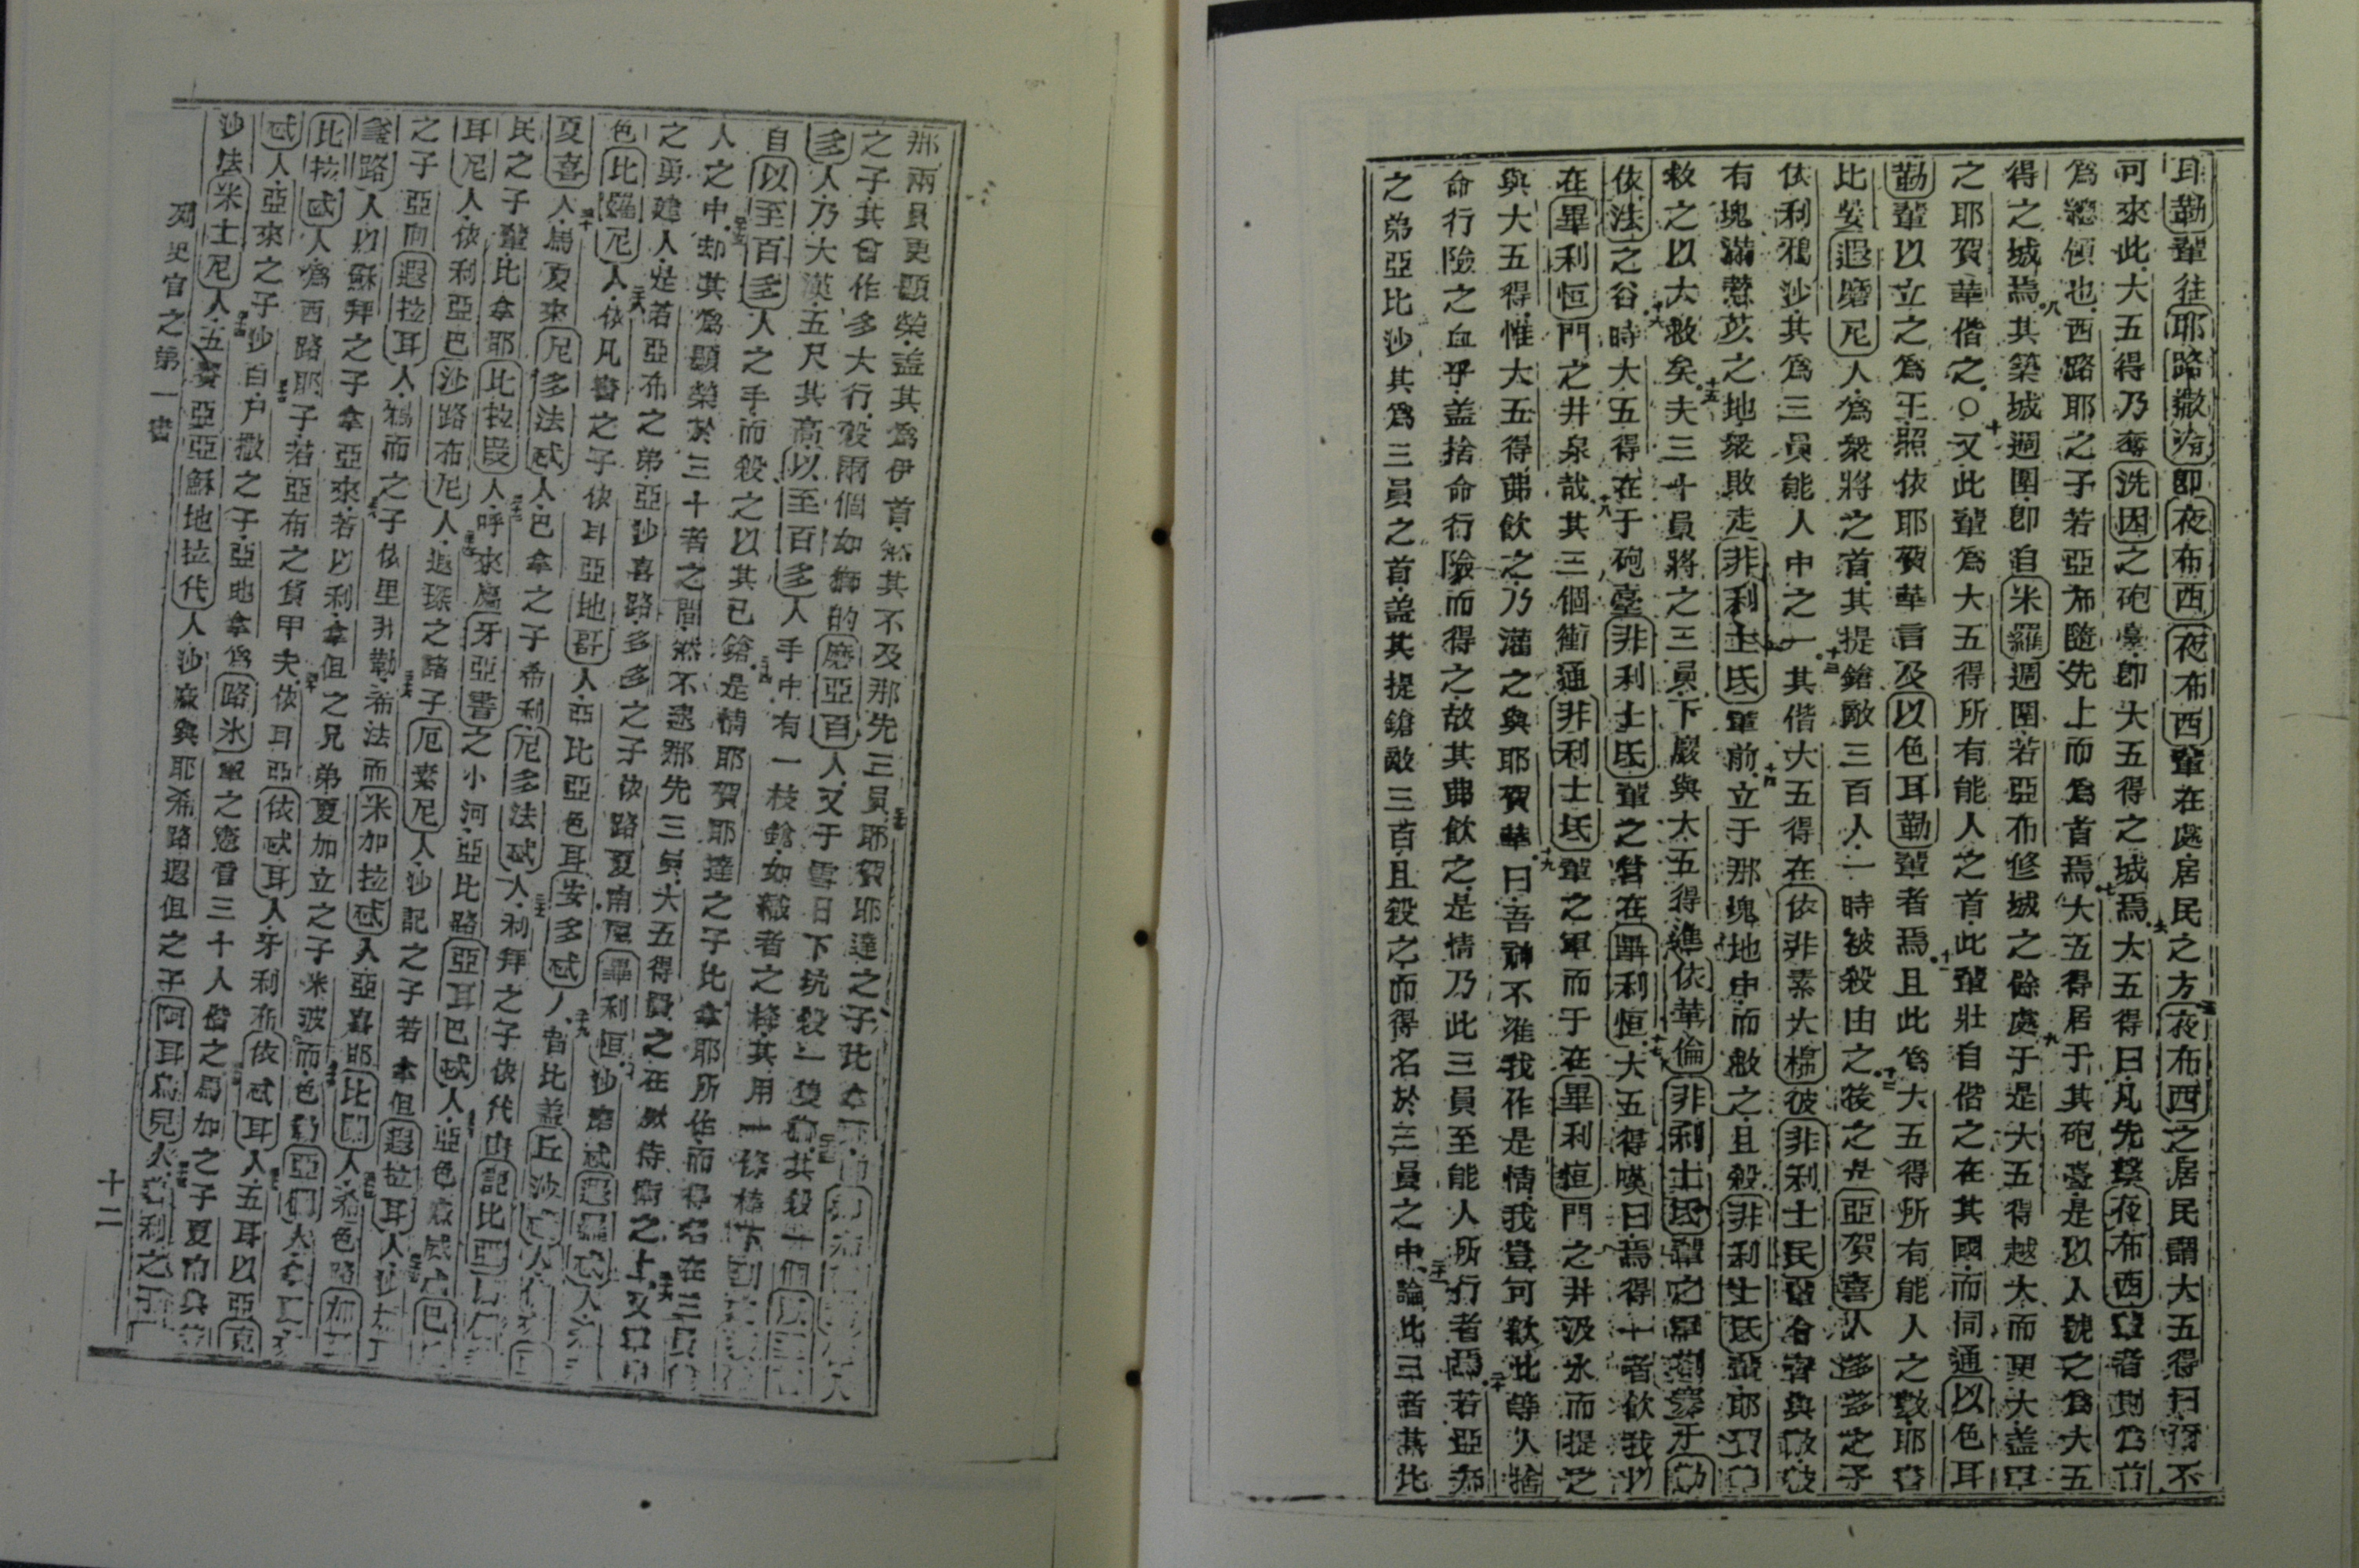 耳勒輩往耶路撒冷即夜布西夜布西輩在處居民之方夜布西之居民謂大五得曰爾不
可來此大五得乃奪洗因之砲臺即大五得之城焉大五得曰凡先擊夜布西輩者則為首
為總領也西路耶之子若亞布隨先上而為首焉大五得居于其砲臺是以人號之為大五
得之城焉其築城週圍即自米羅週圍若亞布修城之餘處于是大五得越大而更大蓋
之耶賀華偕之○又此輩為大五得所有能人之首此輩壯自偕之在其國而同通以色耳
勒輩以立之為王照依耶賀華言及以色耳勒輩者焉且此為大五得所有能人之數耶
比晏遐磨尼人為衆將之首其提鎗敵三百人一時被殺由之後之是亞賀喜人多多之子
依利鴉沙其為三員能人中之一其偕大五得在依非素大棉彼非利士民輩合齊與
有塊滿薏苡之地衆敗走非利士民輩前立于那塊地中而敵之且殺非利士民輩耶
救之以大救矣夫三十員將之三員下巖與大五得進依華倫非利士民輩之軍劄寨于
依法之谷時大五得在于砲臺非利士民輩之營在畢利恒大五得嘆曰焉得一者飲我以
在畢利恒門之井泉哉其三個衝通非利士民輩之軍而于在畢利恒門之井汲水而提之
與大五得惟大五得弗飲之乃灌之與耶賀華曰吾神不准我作是情我豈可飲此等人捨
命行險之血乎蓋捨命行險而得之故其弗飲之是情乃此三員至能人所行者亞若亞布
之弟亞比沙其為三員之首蓋其提鎗敵三百且殺之而得名於三員之中論此三者其比
那兩員更顯榮蓋其為伊首然其不及那先三員耶賀耶達之子比拿
之子其曾作多大行殺兩個如獅的磨亞百人又于雪日下坑殺一隻獅其殺一個以
多人乃大漢五尺其高以至百多人手中有一枝鎗如織者之棒其用一條棒下到
自以至百多人之手而殺之以其已鎗是情耶賀耶達之子比拿耶所作而得名在三
人之中却其為顯榮於三十者之間然不逮那先三員大五得置之在厥侍衛之上又
之勇建人是若亞布之弟亞沙喜路多多之子依路夏南屋畢利恒沙磨忒遐羅忒人
色比羅尼人依凡書之子依耳亞地哥人亞比亞色耳安多忒人昔比蓋丘沙忒人
夏喜人馬夏來尼多法忒人巴拿之子希利尼多法忒人利拜之子依代由記比亞
民之子輩比拿耶比拉段人呼來屬牙亞書之小河亞比路亞耳巴忒人亞色
耳尼人依利亞巴沙路布尼人遐琛之諸子厄素尼人沙記之子若拿但遐拉耳人沙
之子亞向遐拉耳人鴉而之子依里非勒希法而米加拉忒人亞喜耶比
路人以蘇拜之子拿亞來若以利拿但之兄弟夏加立之子米波而色
比拉忒人為西路耶子若亞布之負甲夫依耳亞依忒耳人牙利布依忒耳人五耳以亞
忒人亞來之子沙百戶撒之子亞地拿為路氷輩之總督三千人偕之馬加之子夏
沙法米士尼人五賽亞亞蘇地拉代人沙麻與耶希路遐但之子阿耳烏兒人
列史官之第一書
十二